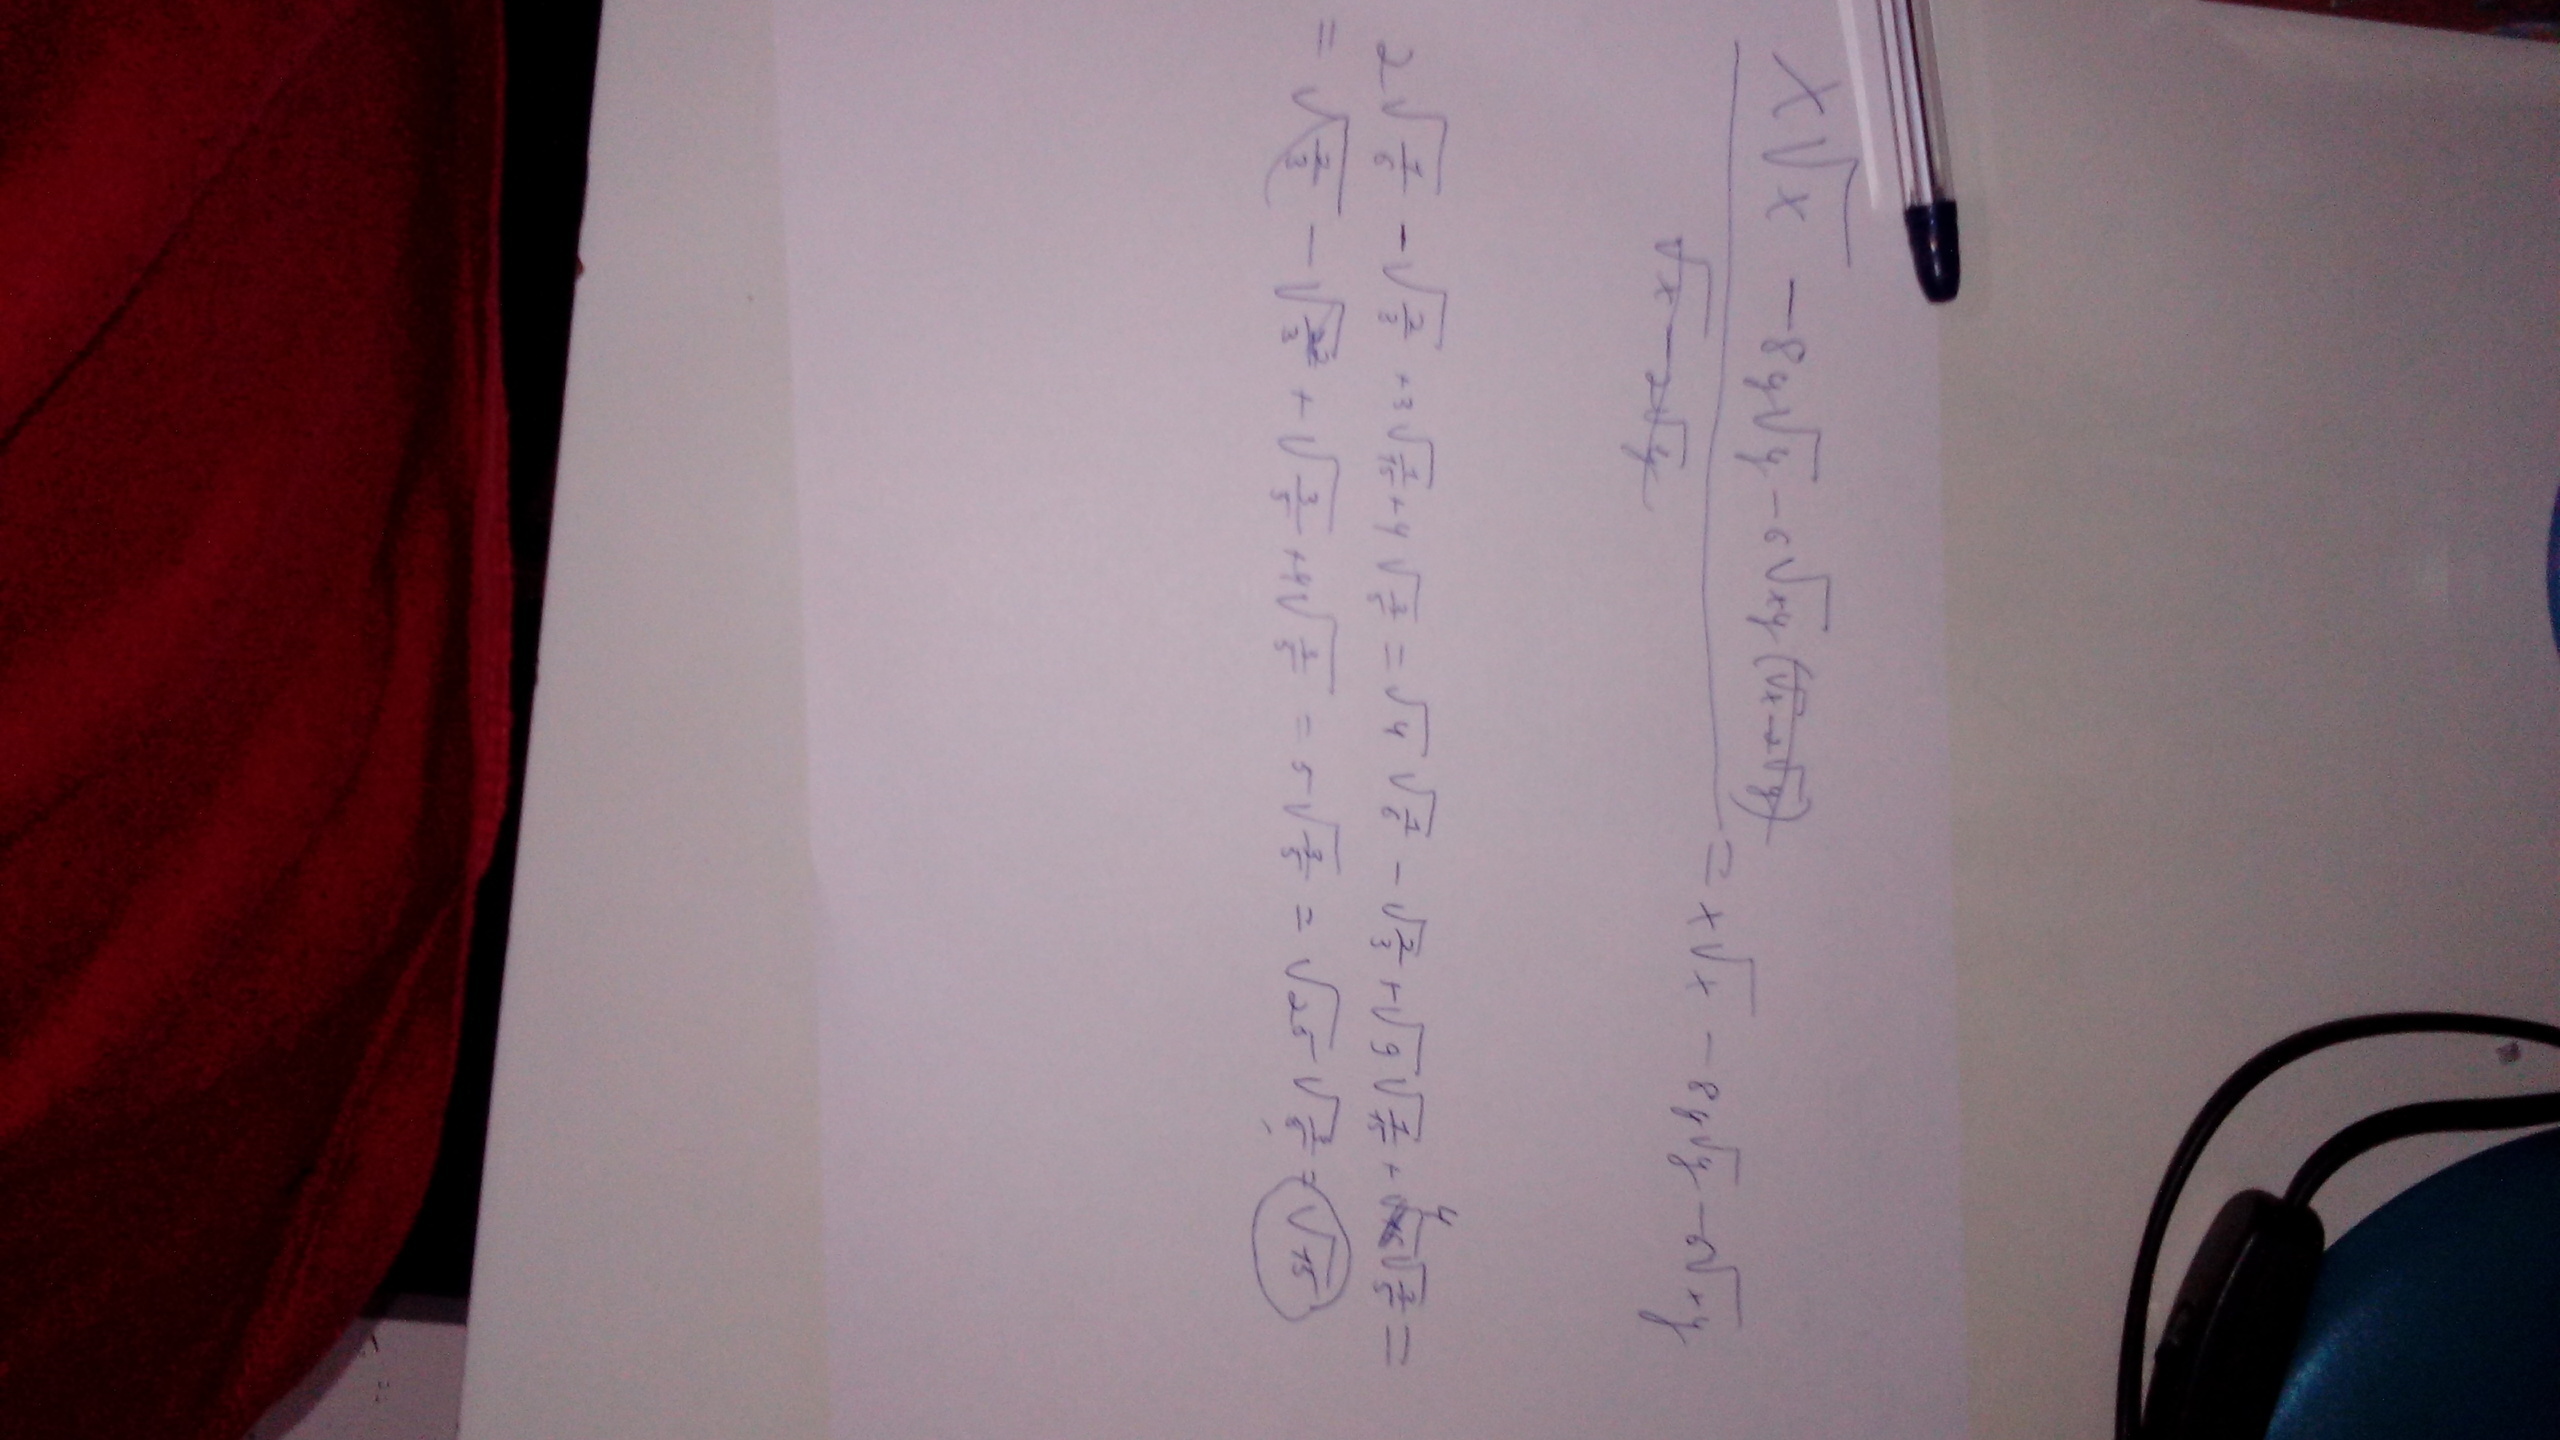 x√x - 8y√y - 6√xy (√x - 2√y)
√x - 2√y
= x√x - 8y√y - 6√xy
2√1/6 - √2/3 + 3√1/15 + 4√3/5 = √4 √1/6 - √2/3 + √9 √1/15 + 4 √3/5 =
= √2/3 - √2/3 + √3/5 + 4√3/5 = 5√3/5 = √25 √3/5 = √15